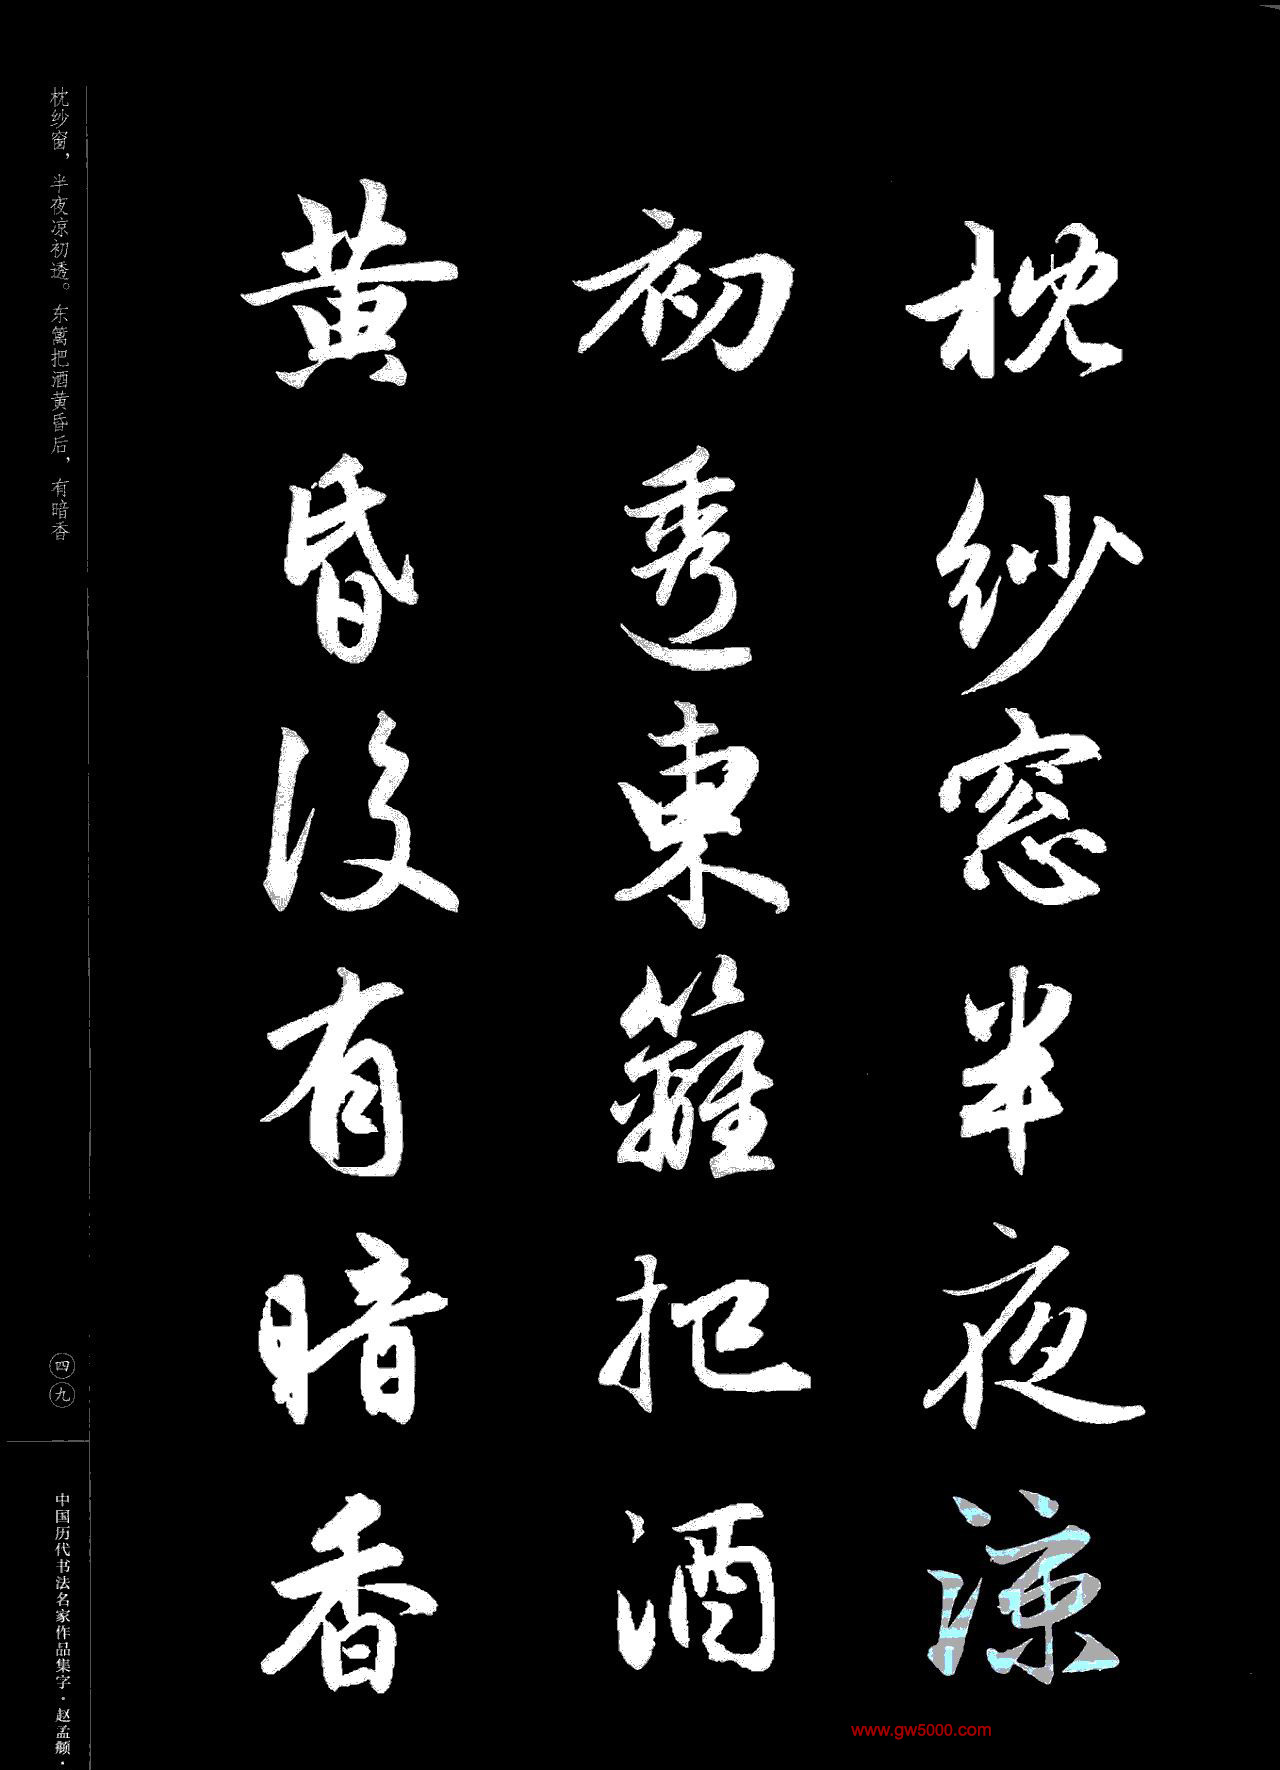 枕紗窓半夜涼
初透東籬把酒
黄昏後有暗香
枕纱窗，半夜凉初透。东篱把酒黄昏后，有暗香
四九
中国历代书法名家作品集字·赵孟頫·
www.gw5000.com